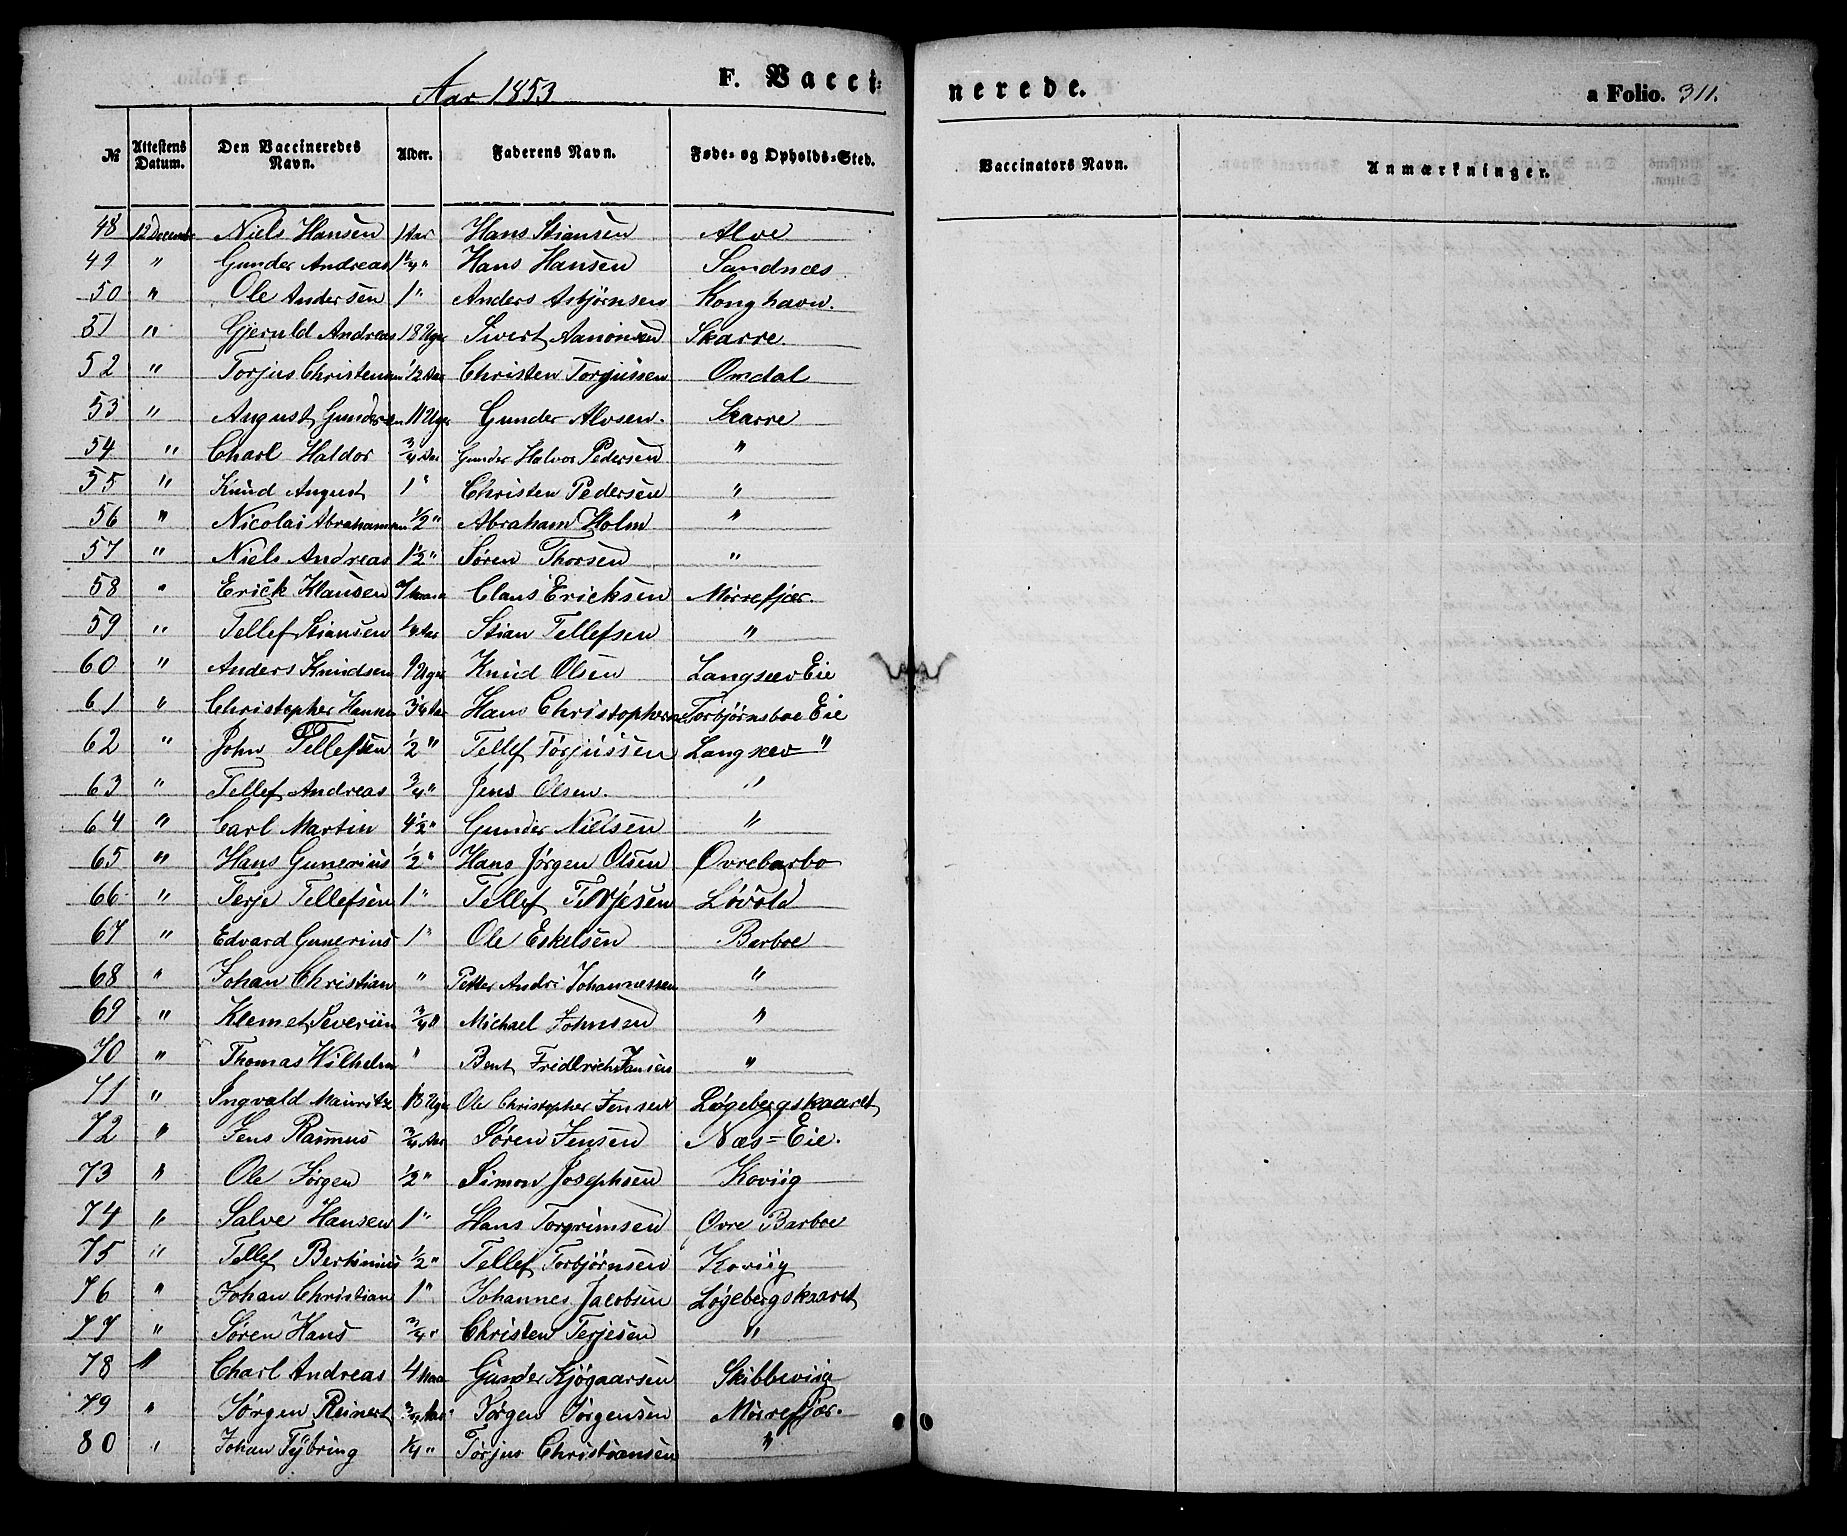 Aar 1853 F. Vacci= nerede. a Folio. 311.
№ Attestens Datum. Den Vaccineredes Navn. Alder. Faderens Navn. Føde- og Opholds-Sted. Vaccinators Navn. Anmærkninger.
48 12 Decembr Niels Hansen 1 Aar Hans Stiansen Alve
49 " Gunder Andreas 1 1/4 " Hans Hansen Sandnæs
50 " Ole Andersen 1 " Anders Asbjørnsen Konghavn.
51 " Gjeruld Andreas 18 Uger Sivert Aanonsen Skarre.
52 " Torjus Christensen 1/2 Aar Christen Torjussen Omdal
53 " August Gundersen 11 Uger Gunder Alvsen. Skarre
54 " Charl Haldor 3/4 Aar Gunder Halvor Pedersen "
55 " Knud August 1 " Christen Pedersen "
56 " Nicolai Abrahamsen 1/2 " Abraham Holm "
57 " Niels Andreas 1 1/2 " Søren Thorsen "
58 " Erick Klausen Claus Ericksen Mørrefjær.
59 " Tellef Stiansen 1/4 Aar Stian Tellefsen "
60 " Anders Knudsen 9 Uger Knud Olsen Langsæv Eie
61 " Christopher Hansen 3/4 Aar Hans Christophersen Torbjørnsboe Eie
62 " John Tellefsen 1/2 " Tellef Torjussen Langsæv "
63 " Tellef Andreas 3/4 " Jens Olsen. "
64 " Carl Martin 4 1/2 " Gunder Nielsen "
65 " Hans Gunerius 1/2 " Hans Jørgen Olsen Øvrebarbo
66 " Terje Tellefsen 1 " Tellef Terjesen Løvold
67 " Edvard Gunerius 1 " Ole Eskelsen Barboe
68 " Johan Christian " Petter Andr: Johannessen "
69 " Klemet Severin 3/4 " Michael Johnsen "
70 " Thomas Wilhelm " Bent Fridlrich Jansen "
71 " Ingvald Mauritz 18 Uger Ole Christopher Jensen Løgebergskaaret
72 " Jens Rasmus 3/4 Aar Søren Jensen Næs=Eie.
73 " Ole Jørgen 1/2 " Simon Josephsen Koviig
74 " Salve Hansen 1 " Hans Torgrimsen Øvre Barboe
75 " Tellef Bertinius 1/2 " Tellef Torbjørnsen Koviig
76 " Johan Christian 1 " Johannes Jacobsen Løgebergskaaret
77 " Søren Hans 3/4 " Christen Terjesen "
78 " Charl Andreas 4 Maa Gunder Kjøgaarsen Skibbeviig
79 " Jørgen Reinert 3/4 Aar Jørgen Jørgensen Mørrefjær.
80 " Johan Tybring 1/4 " Torjus Christiansen "